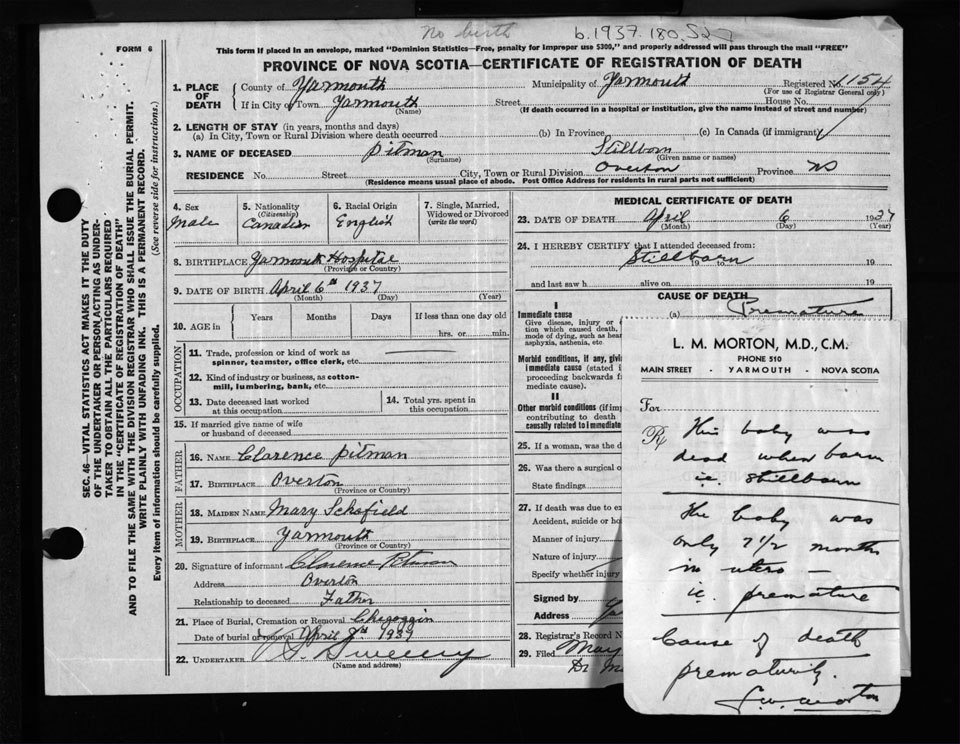 No birth
b.1937.180.527
FORM 6
This form if placed in an envelope, marked "Dominion Statistics—Free, penalty for improper use $300," and properly addressed will pass through the mail "FREE"
PROVINCE OF NOVA SCOTIA—CERTIFICATE OF REGISTRATION OF DEATH
SEC. 46—VITAL STATISTICS ACT MAKES IT THE DUTY
OF THE UNDERTAKER OR PERSON ACTING AS UNDER-
TAKER TO OBTAIN ALL THE PARTICULARS REQUIRED
IN THE "CERTIFICATE OF REGISTRATION OF DEATH"
AND TO FILE THE SAME WITH THE DIVISION REGISTRAR WHO SHALL ISSUE THE BURIAL PERMIT.
WRITE PLAINLY WITH UNFADING INK. THIS IS A PERMANENT RECORD.
Every item of information should be carefully supplied. (See reverse side for instructions.)
1. PLACE OF DEATH County of Yarmouth Municipality of Yarmouth Registered No. 1154
(For use of Registrar General only)
If in City or Town Yarmouth Street House No.
(Name) (If death occurred in a hospital or institution, give the name instead of street and number)
2. LENGTH OF STAY (in years, months and days)
(a) In City, Town or Rural Division where death occurred (b) In Province (c) In Canada (if immigrant)
3. NAME OF DECEASED Pitman Stillborn
(Surname) (Given name or names)
RESIDENCE No. Street City, Town or Rural Division Overton Province NS
(Residence means usual place of abode. Post Office Address for residents in rural parts not sufficient)
4. Sex Male
5. Nationality (Citizenship) Canadian
6. Racial Origin English
7. Single, Married, Widowed or Divorced (write the word)
8. BIRTHPLACE Yarmouth Hospital
(Province or Country)
9. DATE OF BIRTH April 6th 1937
(Month) (Day) (Year)
10. AGE in Years Months Days If less than one day old
hrs. or min.
OCCUPATION
11. Trade, profession or kind of work as
spinner, teamster, office clerk, etc.
12. Kind of industry or business, as cotton-
mill, lumbering, bank, etc.
13. Date deceased last worked
at this occupation
14. Total yrs. spent in
this occupation
15. If married give name of wife
or husband of deceased
FATHER
16. NAME Clarence Pitman
17. BIRTHPLACE Overton
(Province or Country)
MOTHER
18. MAIDEN NAME Mary Schofield
19. BIRTHPLACE Yarmouth
(Province or Country)
20. Signature of informant Clarence Pitman
Address Overton
Relationship to deceased Father
21. Place of Burial, Cremation or Removal Chegoggin
Date of burial or removal April 8th 1937
22. UNDERTAKER Sweeny
(Name and address)
MEDICAL CERTIFICATE OF DEATH
23. DATE OF DEATH April 6 1937
(Month) (Day) (Year)
24. I HEREBY CERTIFY that I attended deceased from:
Stillborn 19 to 19
and last saw h alive on 19
CAUSE OF DEATH
I
Immediate cause (a) Premature
Give disease, injury or
tion which caused death,
mode of dying, such as hear
asphyxia, asthenia, etc.
Morbid conditions, if any, givi
immediate cause (stated i
proceeding backwards f
mediate cause).
II
Other morbid conditions (if imp
contributing to death
causally related to immediate
25. If a woman, was the d
26. Was there a surgical o
State findings
27. If death was due to ex
Accident, suicide or ho
Manner of injury
Nature of injury
Specify whether injury
Signed by
Address
28. Registrar's Record N
29. Filed May
L. M. MORTON, M.D., C.M.
PHONE 510
MAIN STREET - YARMOUTH - NOVA SCOTIA
For
℞ This baby was
dead when born
ie. stillborn
The baby was
only 7 1/2 months
in utero —
ie. premature
Cause of death
prematurity.
L.M. Morton